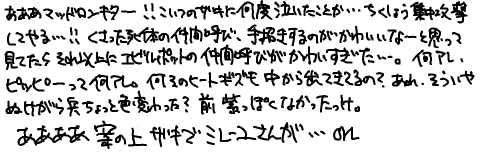 あああマッドロンギター!!こいつのザキに何度泣いたことか…ちくしょう集中攻撃
してやる…!!くさった死体の仲間呼び、手招きするのがかわいいなーと思って
見てたらそれ以上にエビルポットの仲間呼びがかわいすぎた…。何アレ、
ピッピーって何アレ。何そのヒートギズモ中から出てきてるの?あれ、そういや
ぬけがら兵ちょっと色変わった?前紫っぽくなかったっけ。
ああああ 案の上ザキでミレーユさんが… orz